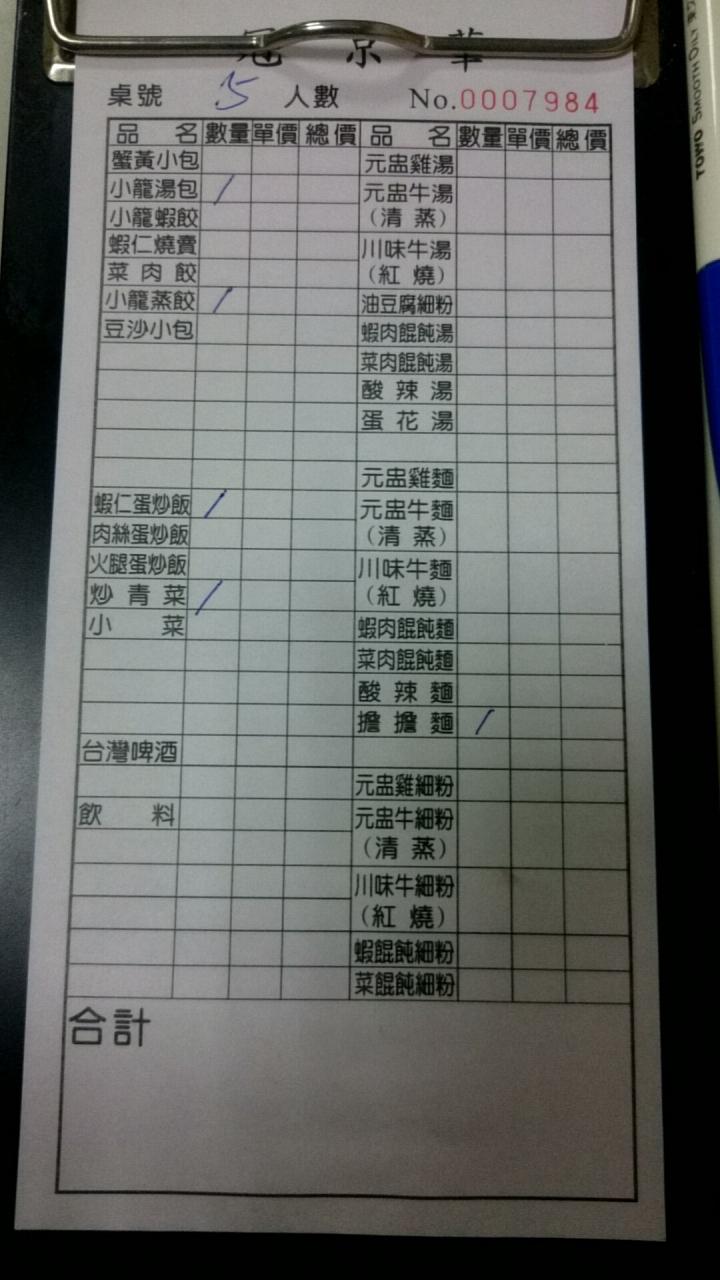 冠京華
桌號 5 人數 No.0007984
品名 數量 單價 總價 品名 數量 單價 總價
蟹黃小包 元盅雞湯
小籠湯包 / 元盅牛湯
小籠蝦餃 (清蒸)
蝦仁燒賣 川味牛湯
菜肉餃 (紅燒)
小籠蒸餃 / 油豆腐細粉
豆沙小包 蝦肉餛飩湯
菜肉餛飩湯
酸辣湯
蛋花湯
元盅雞麵
蝦仁蛋炒飯 / 元盅牛麵
肉絲蛋炒飯 (清蒸)
火腿蛋炒飯 川味牛麵
炒青菜 / (紅燒)
小菜 蝦肉餛飩麵
菜肉餛飩麵
酸辣麵
擔擔麵 /
台灣啤酒
元盅雞細粉
飲料 元盅牛細粉
(清蒸)
川味牛細粉
(紅燒)
蝦餛飩細粉
菜餛飩細粉
合計
TOWO SMOOTH OILY